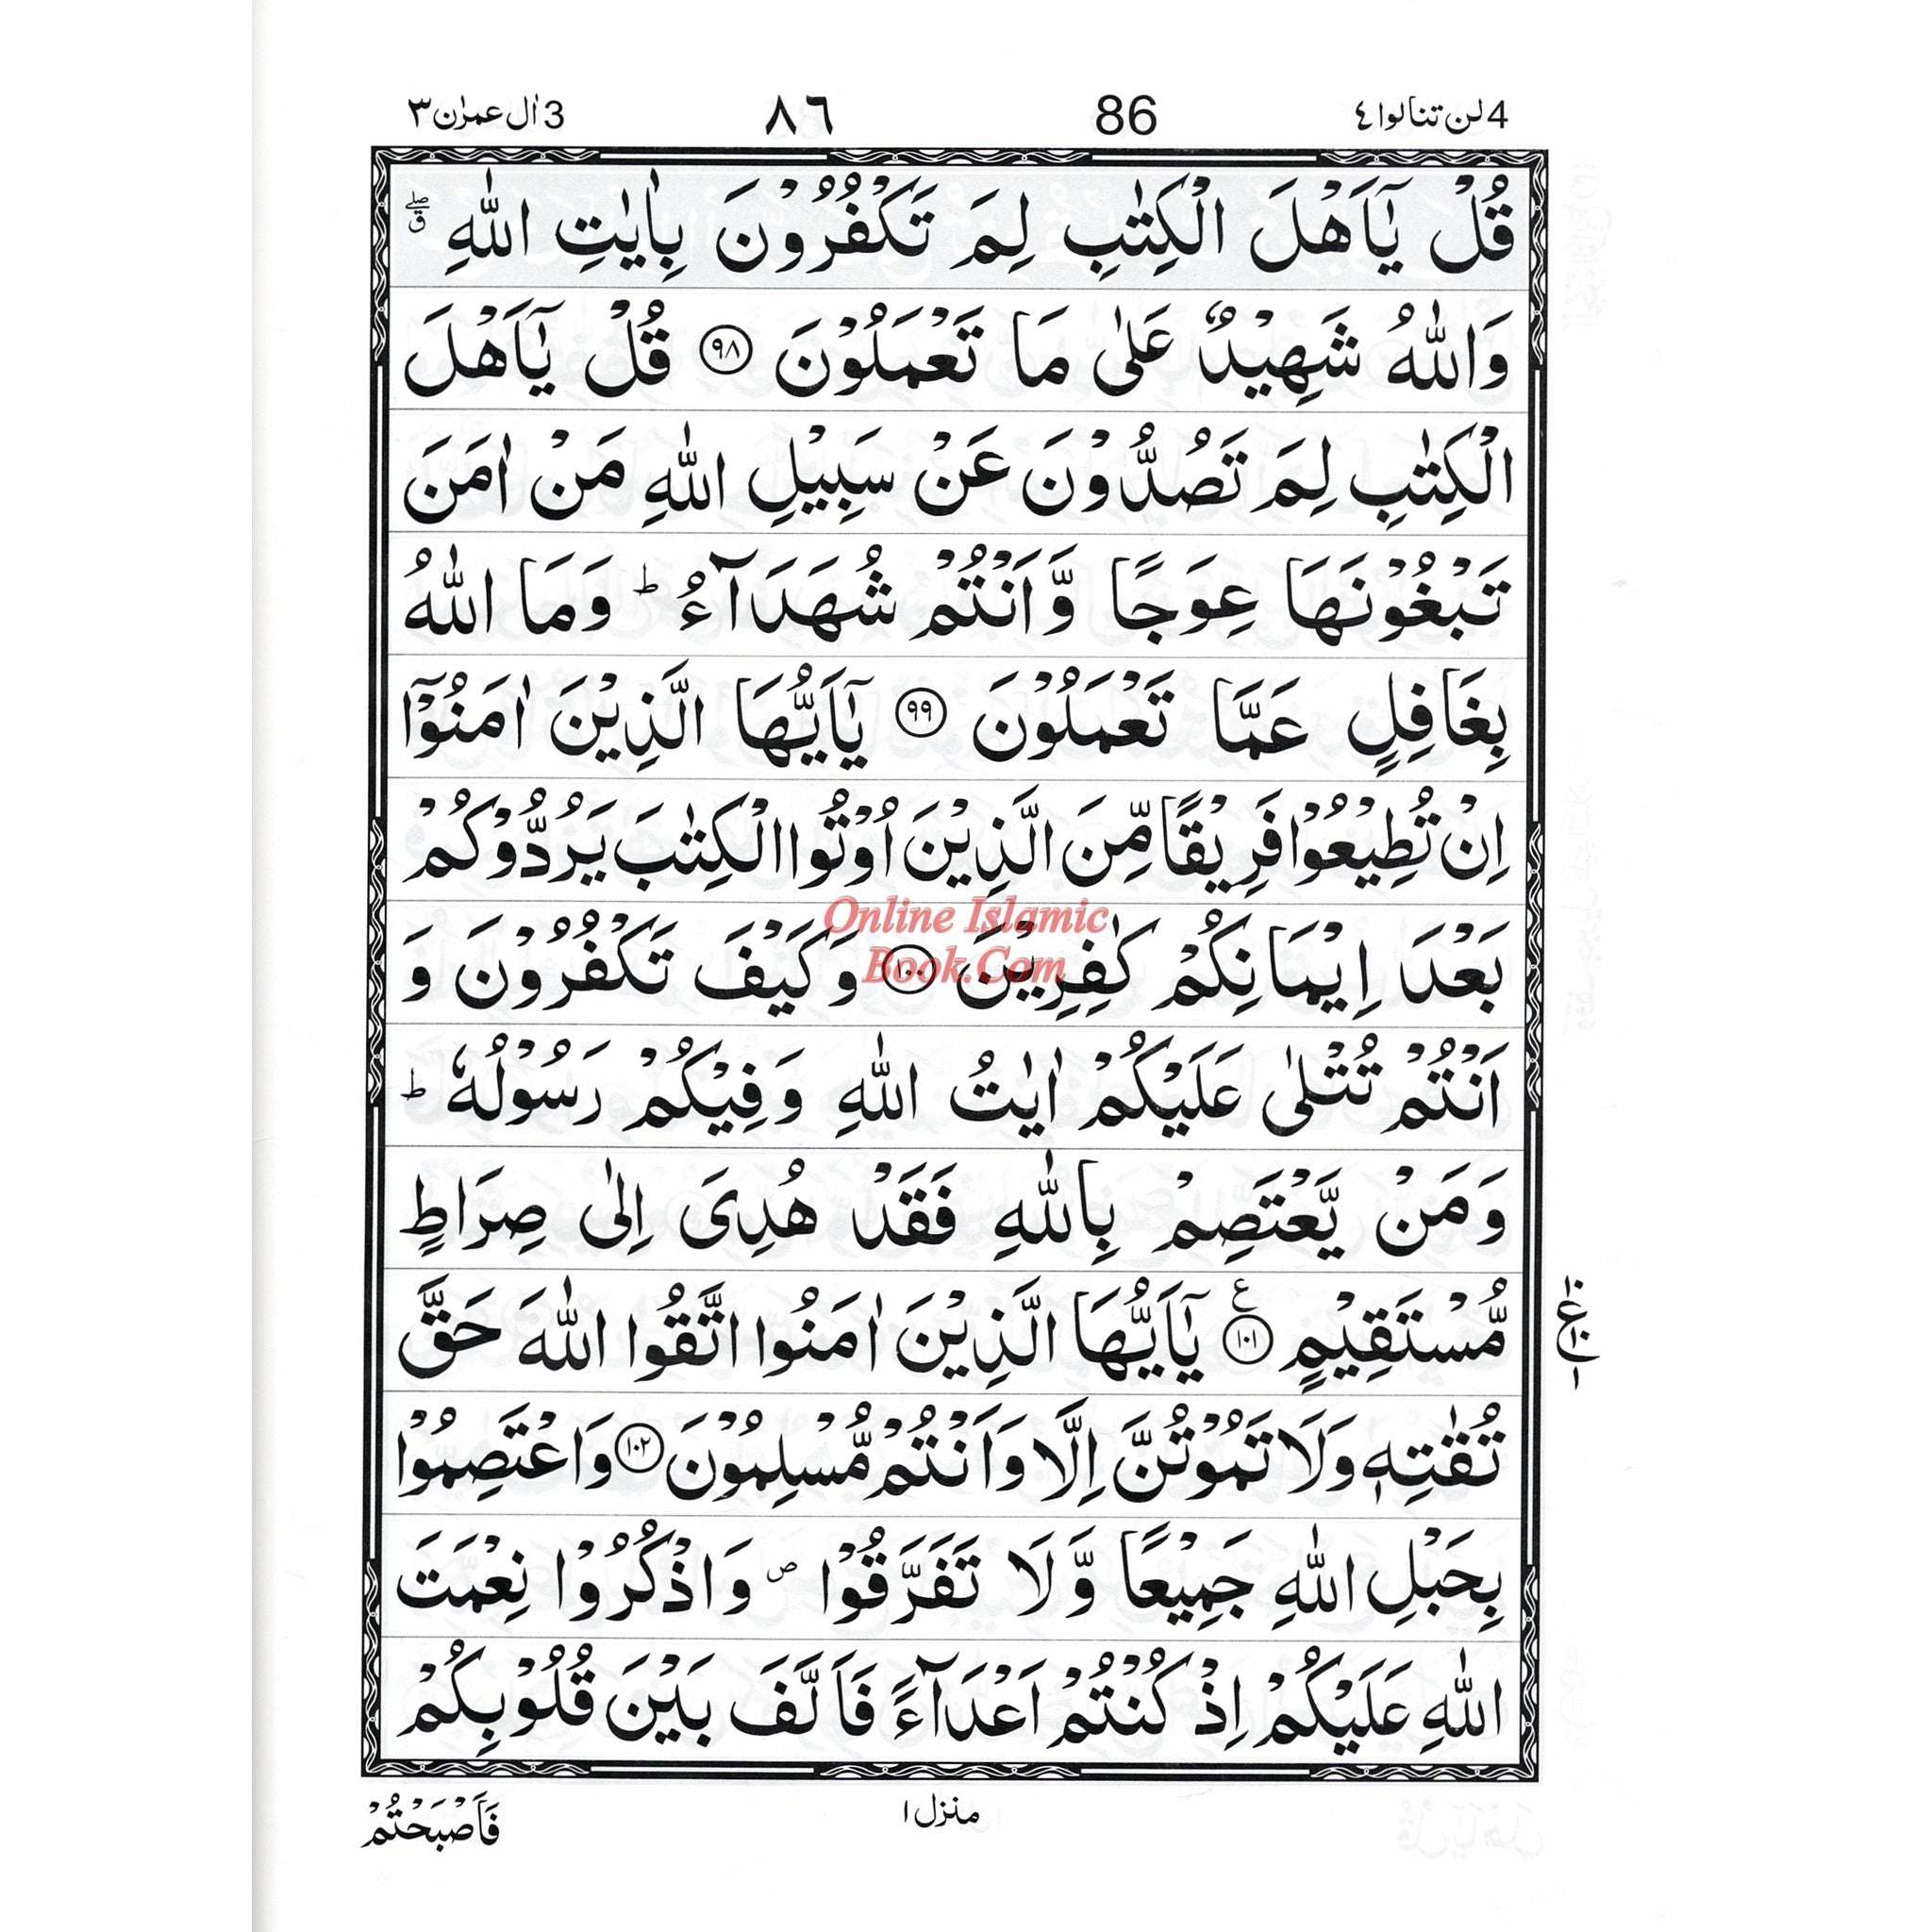 4 لن تنالوا ٤
86
٨٦
3 اٰل عمرٰن ٣
قُلْ يٰۤاَهْلَ الْكِتٰبِ لِمَ تَكْفُرُوْنَ بِاٰيٰتِ اللّٰهِ ۖق
وَاللّٰهُ شَهِيْدٌ عَلٰى مَا تَعْمَلُوْنَ ﴿۹۸﴾ قُلْ يٰۤاَهْلَ
الْكِتٰبِ لِمَ تَصُدُّوْنَ عَنْ سَبِيْلِ اللّٰهِ مَنْ اٰمَنَ
تَبْغُوْنَهَا عِوَجًا وَّاَنْتُمْ شُهَدَآءُ ؕ وَمَا اللّٰهُ
بِغَافِلٍ عَمَّا تَعْمَلُوْنَ ﴿۹۹﴾ يٰۤاَيُّهَا الَّذِيْنَ اٰمَنُوْۤا
اِنْ تُطِيْعُوْا فَرِيْقًا مِّنَ الَّذِيْنَ اُوْتُوا الْكِتٰبَ يَرُدُّوْكُمْ
بَعْدَ اِيْمَانِكُمْ كٰفِرِيْنَ ﴿۱۰۰﴾ وَكَيْفَ تَكْفُرُوْنَ وَ
اَنْتُمْ تُتْلٰى عَلَيْكُمْ اٰيٰتُ اللّٰهِ وَفِيْكُمْ رَسُوْلُهٗ ؕ
وَمَنْ يَّعْتَصِمْ بِاللّٰهِ فَقَدْ هُدِىَ اِلٰى صِرَاطٍ
مُّسْتَقِيْمٍ ﴿۱۰۱﴾ ع يٰۤاَيُّهَا الَّذِيْنَ اٰمَنُوا اتَّقُوا اللّٰهَ حَقَّ
تُقٰتِهٖ وَلَا تَمُوْتُنَّ اِلَّا وَاَنْتُمْ مُّسْلِمُوْنَ ﴿۱۰۲﴾ وَاعْتَصِمُوْا
بِحَبْلِ اللّٰهِ جَمِيْعًا وَّلَا تَفَرَّقُوْا ص وَاذْكُرُوْا نِعْمَتَ
اللّٰهِ عَلَيْكُمْ اِذْ كُنْتُمْ اَعْدَآءً فَاَلَّفَ بَيْنَ قُلُوْبِكُمْ
منزل ١
فَاَصْبَحْتُمْ
Online Islamic
Book.Com